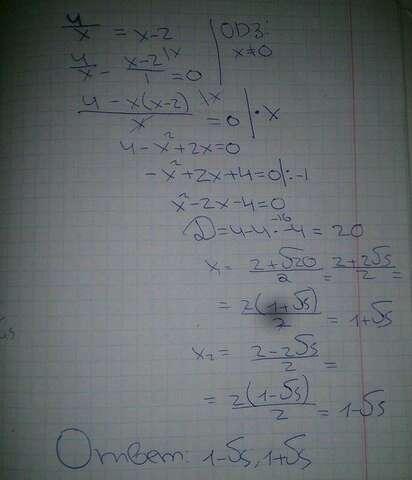 4/x = x-2 | ОДЗ:
4/x - x-2/1 \x = 0 | x≠0
4-x(x-2)/x \x = 0 | · x
4-x²+2x=0
-x²+2x+4=0 |:-1
x²-2x-4=0
D=4-4·-4 -16 = 20
x = 2+√20/2 = 2+2√5/2 =
= 2(1+√5)/2 = 1+√5
x₂ = 2-2√5/2 =
= 2(1-√5)/2 = 1-√5
Ответ: 1-√5, 1+√5